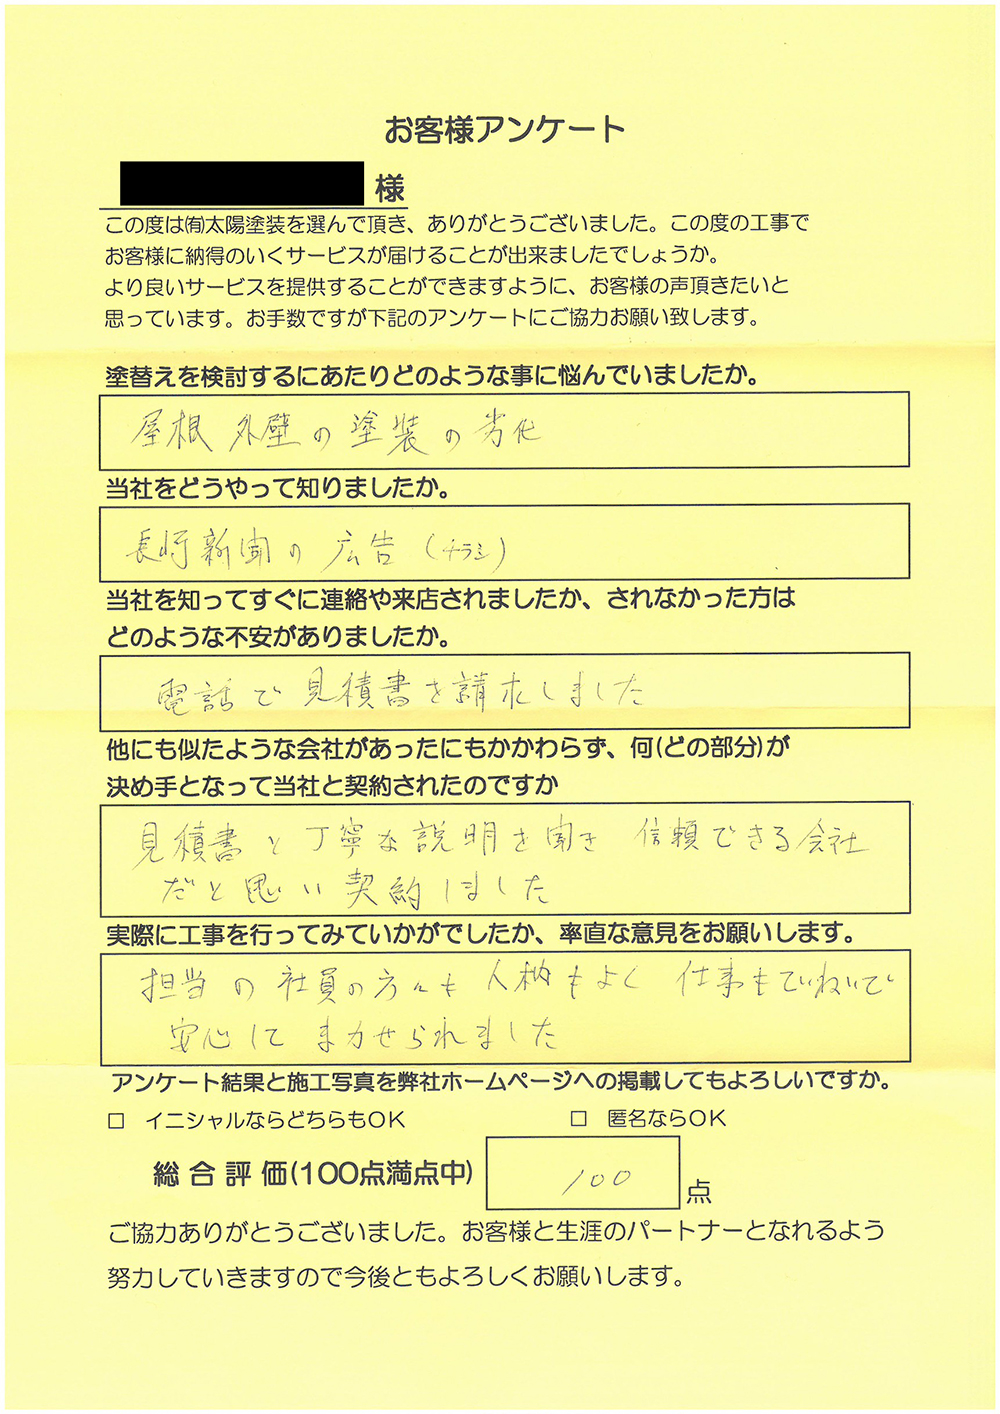 お客様アンケート
様
この度は㈲太陽塗装を選んで頂き、ありがとうございました。この度の工事で
お客様に納得のいくサービスが届けることが出来ましたでしょうか。
より良いサービスを提供することができますように、お客様の声頂きたいと
思っています。お手数ですが下記のアンケートにご協力お願い致します。
塗替えを検討するにあたりどのような事に悩んでいましたか。
屋根 外壁の塗装の劣化
当社をどうやって知りましたか。
長崎新聞の広告(チラシ)
当社を知ってすぐに連絡や来店されましたか、されなかった方は
どのような不安がありましたか。
電話で見積書を請求しました
他にも似たような会社があったにもかかわらず、何(どの部分)が
決め手となって当社と契約されたのですか
見積書と丁寧な説明を聞き 信頼できる会社
だと思い契約しました
実際に工事を行ってみていかがでしたか、率直な意見をお願いします。
担当の社員の方々も人柄もよく 仕事もていねいで
安心して まかせられました
アンケート結果と施工写真を弊社ホームページへの掲載してもよろしいですか。
□ イニシャルならどちらもOK □ 匿名ならOK
総合評価(100点満点中) 100 点
ご協力ありがとうございました。お客様と生涯のパートナーとなれるよう
努力していきますので今後ともよろしくお願いします。